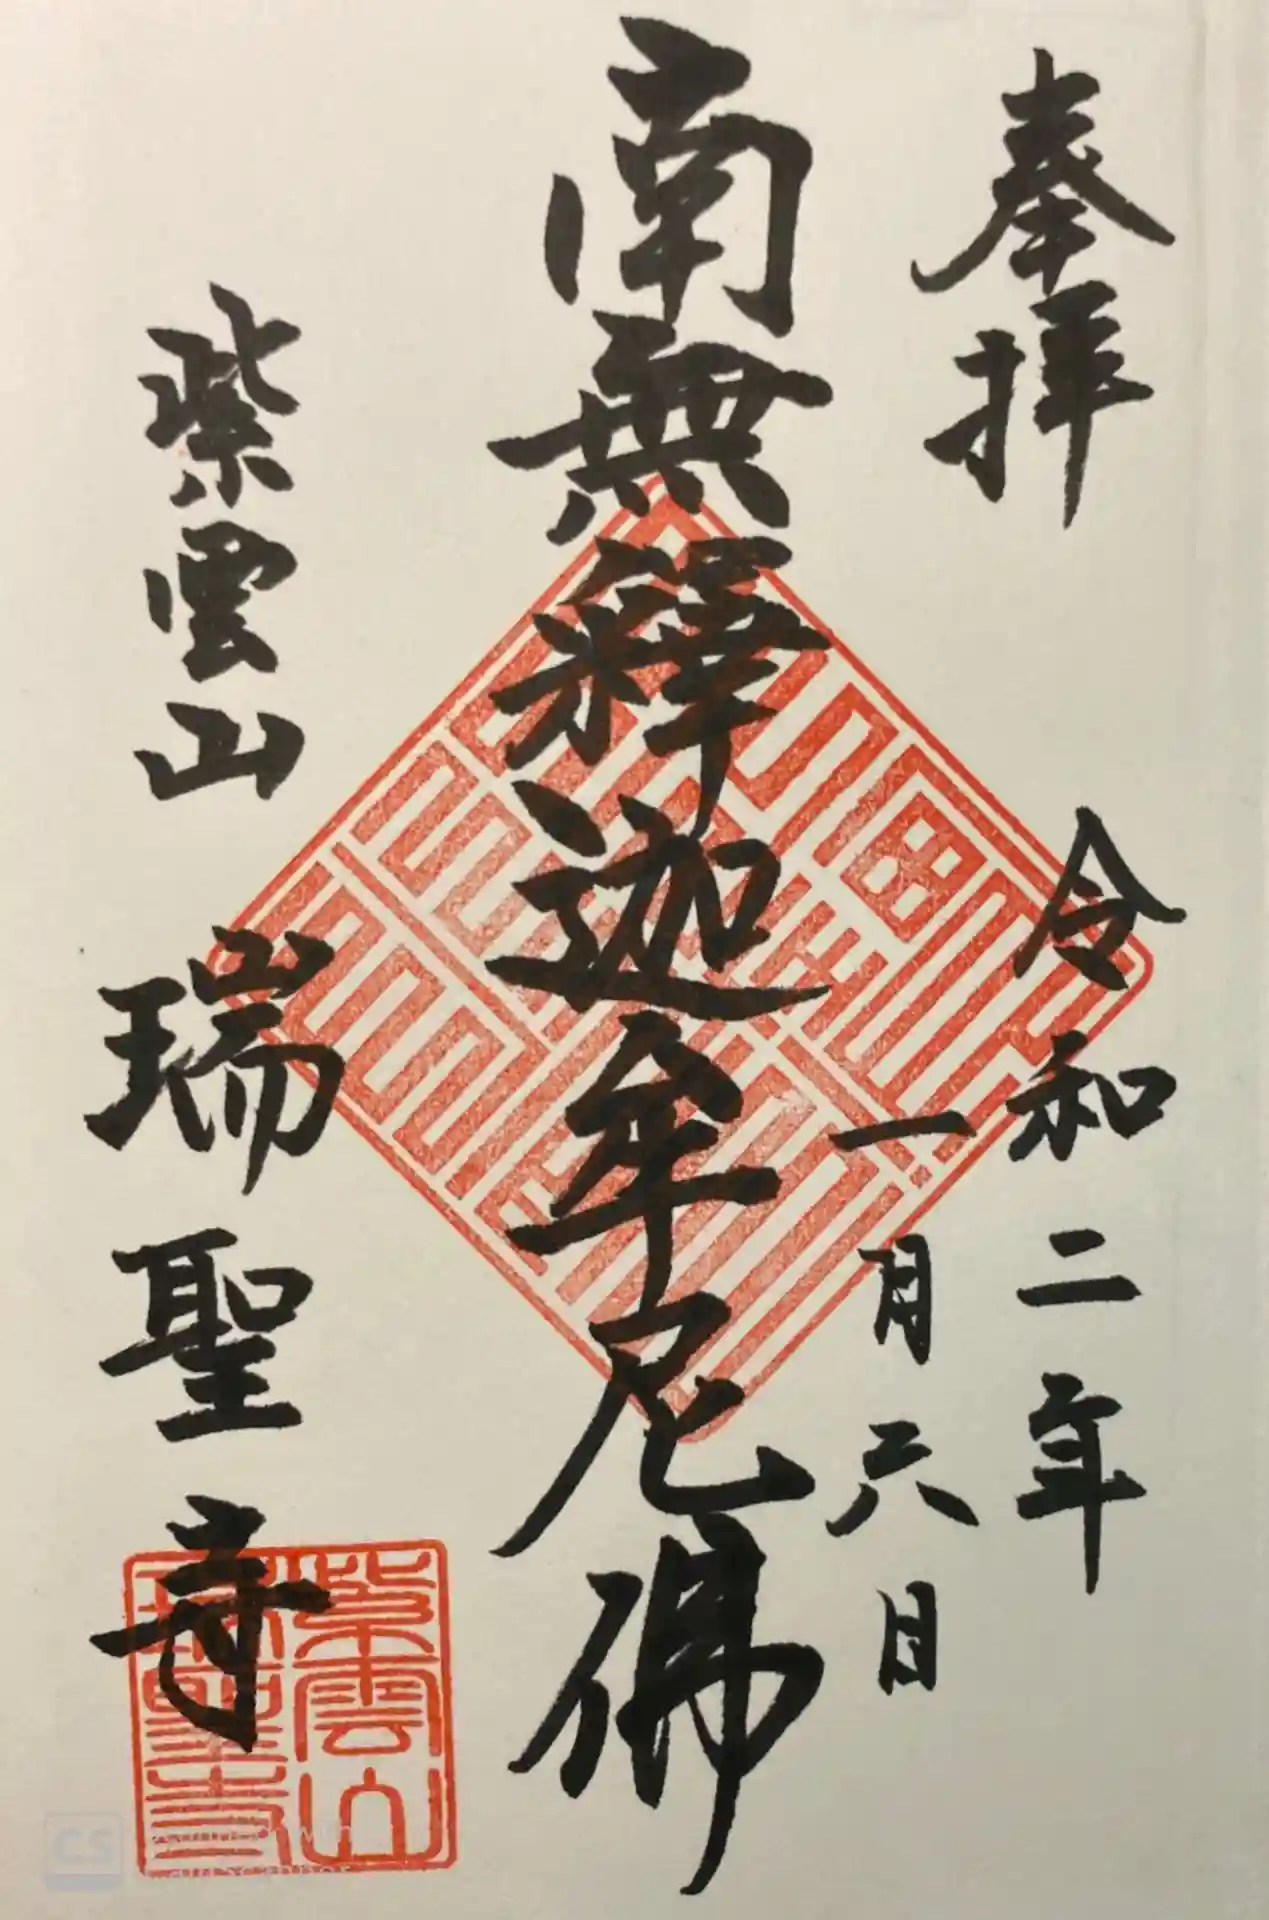 奉拝
令和二年
一月六日
南無釋迦牟尼佛
紫雲山
瑞聖寺
紫雲山
瑞聖寺
CS